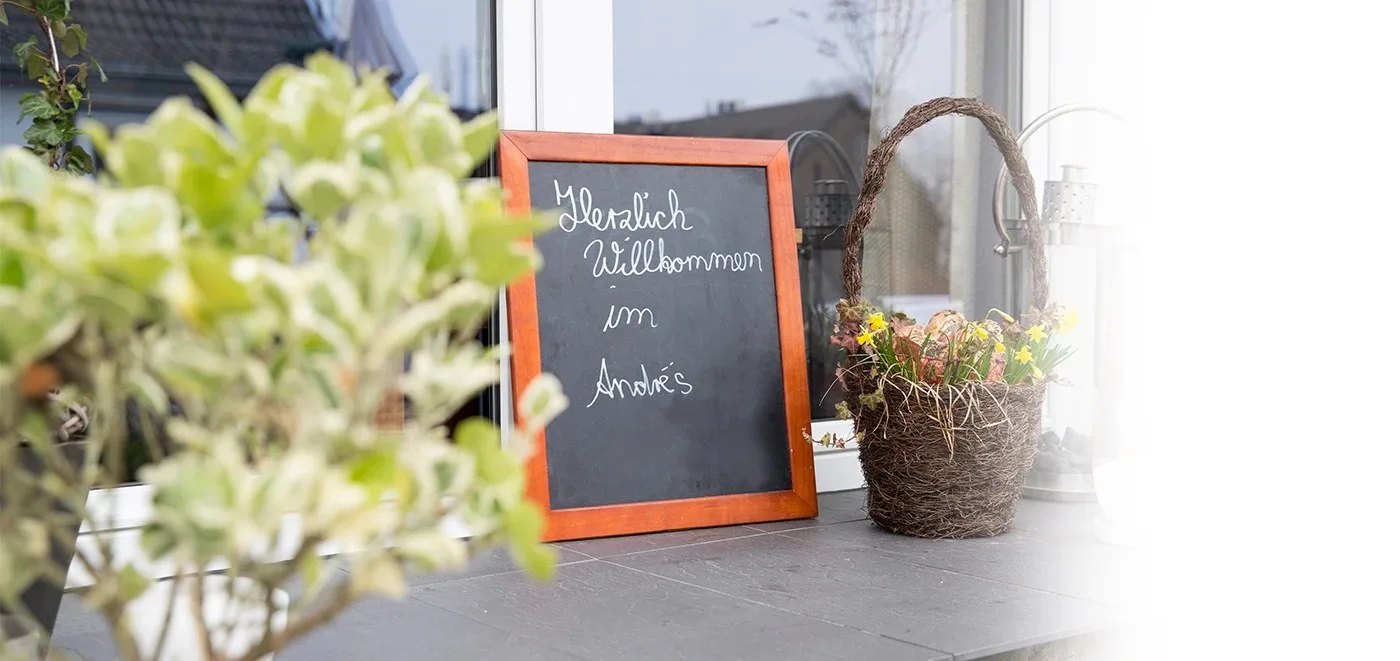 Herzlich
Willkommen
im
André's